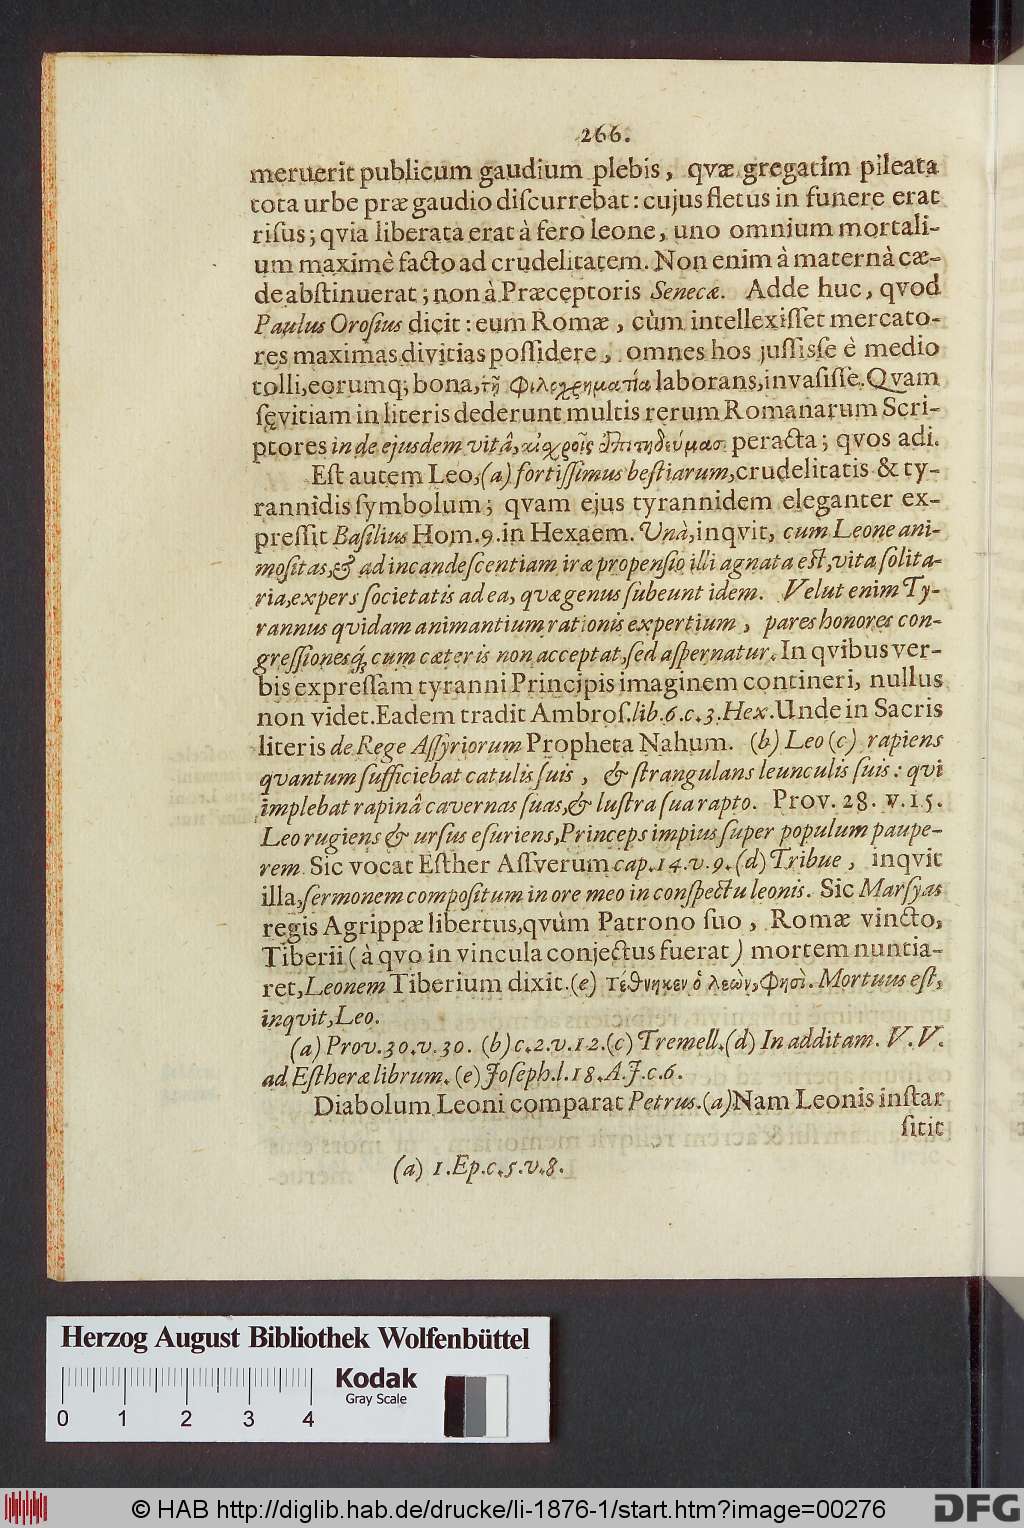 266.
meruerit publicum gaudium plebis, qvæ gregatim pileata
tota urbe præ gaudio diſcurrebat: cujus fletus in funere erat
riſus; qvia liberata erat à fero leone, uno omnium mortali-
um maximè facto ad crudelitatem. Non enim à maternà cæ-
de abſtinuerat; non à Præceptoris Senecæ. Adde huc, qvod
Paulus Oroſius dicit: eum Romæ, cùm intellexiſſet mercato-
res maximas divitias poſſidere, omnes hos juſſisſe è medio
tolli, eorumq; bona, τῇ Φιλοχρηματία laborans, invaſiſſe. Qvam
ſęvitiam in literis dederunt multis rerum Romanarum Scri-
ptores inde ejusdem vitâ, αἰχροῖς ἐπιτηδεύμασι peracta; qvos adi.
Eſt autem Leo, (a) fortiſſimus beſtiarum, crudelitatis & ty-
rannidis ſymbolum; qvam ejus tyrannidem eleganter ex-
preſſit Baſilius Hom. 9. in Hexaem. Unà, inqvit, cum Leone ani-
moſitas, & ad incandeſcentiam iræ propenſio illi agnata eſt, vita ſolita-
ria, expers ſocietatis ad ea, quæ genus ſubeunt idem. Velut enim Ty-
rannus qvidam animantium rationis expertium, pares honores con-
greſſionesq́; cum cæteris non acceptat, ſed aſpernatur. In qvibus ver-
bis expreſſam tyranni Principis imaginem contineri, nullus
non videt. Eadem tradit Ambroſ. lib. 6. c. 3. Hex. Unde in Sacris
literis de Rege Aſſyriorum Propheta Nahum. (b) Leo (c) rapiens
qvantum ſufficiebat catulis ſuis, & ſtrangulans leunculis ſuis: qvi
implebat rapinâ cavernas ſuas, & luſtra ſua rapto. Prov. 28. v. 15.
Leo rugiens & urſus eſuriens, Princeps impius ſuper populum paupe-
rem. Sic vocat Eſther Aſſverum cap. 14. v. 9. (d) Tribue, inqvit
illa, ſermonem compoſitum in ore meo in conſpectu leonis. Sic Marſyas
regis Agrippæ libertus, qvùm Patrono ſuo, Romæ vincto,
Tiberii (à qvo in vincula conjectus fuerat) mortem nuntia-
ret, Leonem Tiberium dixit. (e) Τέθνηκεν ὁ λεὼν, Φησὶ. Mortuus eſt,
inqvit, Leo.
(a) Prov. 30. v. 30. (b) c. 2. v. 12. (c) Tremell. (d) In additam. V. V.
ad Eſtheræ librum. (e) Joſeph. l. 18. A. J. c. 6.
Diabolum Leoni comparat Petrus. (a) Nam Leonis inſtar
ſitit
(a) 1. Ep. c. 5. v. 8.
Herzog August Bibliothek Wolfenbüttel
Kodak
Gray Scale
0 1 2 3 4
© HAB http://diglib.hab.de/drucke/li-1876-1/start.htm?image=00276
DFG